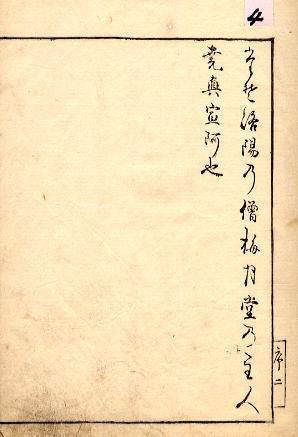 4
洛陽乃僧梅月堂乃主人
堯真宣阿也
序二